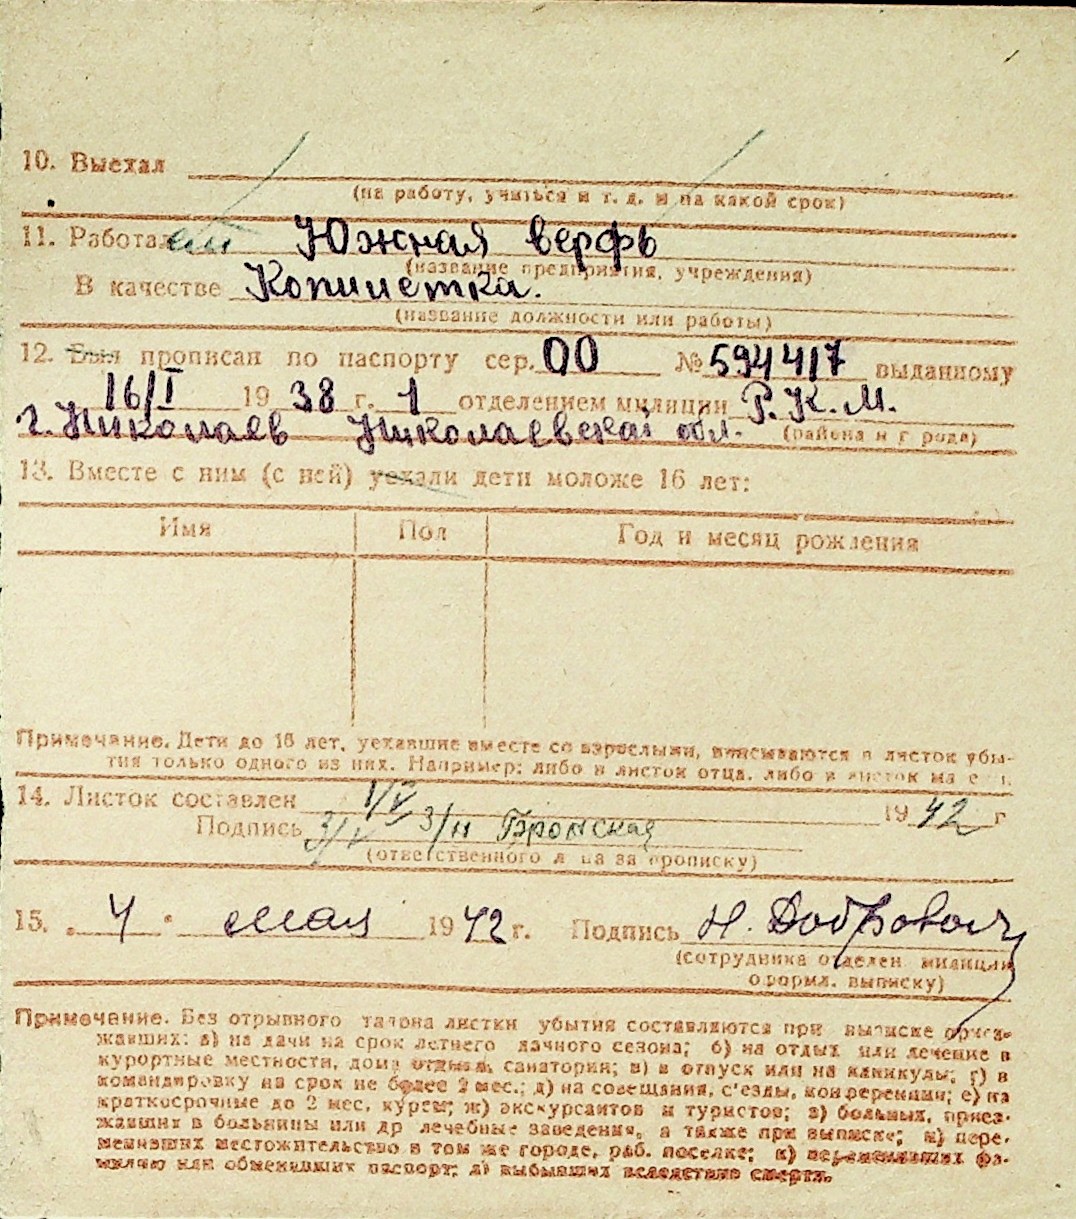 10. Выехал
(на работу, учиться и т. д. и на какой срок)
11. Работал Южная верфь
(название предприятия, учреждения)
В качестве Копилетка.
(название должности или работы)
12. Был прописан по паспорту сер. 00 № 594417 выданному
16/I 19 38 г. 1 отделением милиции Р.К.М.
г. Николаев Николаевской обл. (района и города)
13. Вместе с ним (с ней) уехали дети моложе 16 лет:
Имя Пол Год и месяц рождения
Примечание. Дети до 16 лет, уехавшие вместе со взрослыми, вписываются в листок убы-
тия только одного из них. Например: либо в листок отца, либо в листок матери.
14. Листок составлен 1/V 19 42 г
Подпись 3/V З/н Бронская
(ответственного лица за прописку)
15. 4 мая 19 42 г. Подпись Н. Добровол
(сотрудника отделен. милиции
оформл. выписку)
Примечание. Без отрывного талона листки убытия составляются при выписке приез-
жавших: а) на дачи на срок летнего дачного сезона; б) на отдых или лечение в
курортные местности, дома отдыха, санатории; в) в отпуск или на каникулы; г) в
командировку на срок не более 2 мес.; д) на совещания, с'езды, конференции; е) на
краткосрочные до 2 мес. курсы; ж) экскурсантов и туристов; з) больных, приез-
жавших в больницы или др лечебные заведения, а также при выписке; и) пере-
менивших местожительство в том же городе, раб. поселке; к) переменивших фа-
милию или обменявших паспорт; л) выбывших вследствие смерти.